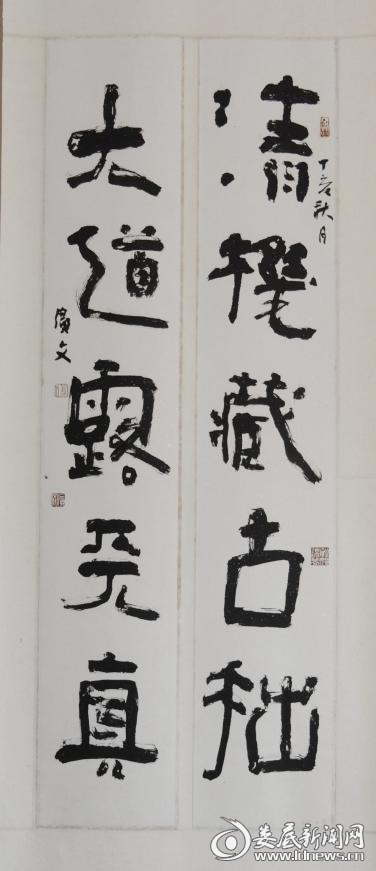 清機藏古拙
丁亥秋月
大道露天真
娄底新闻网
www.ldnews.cn